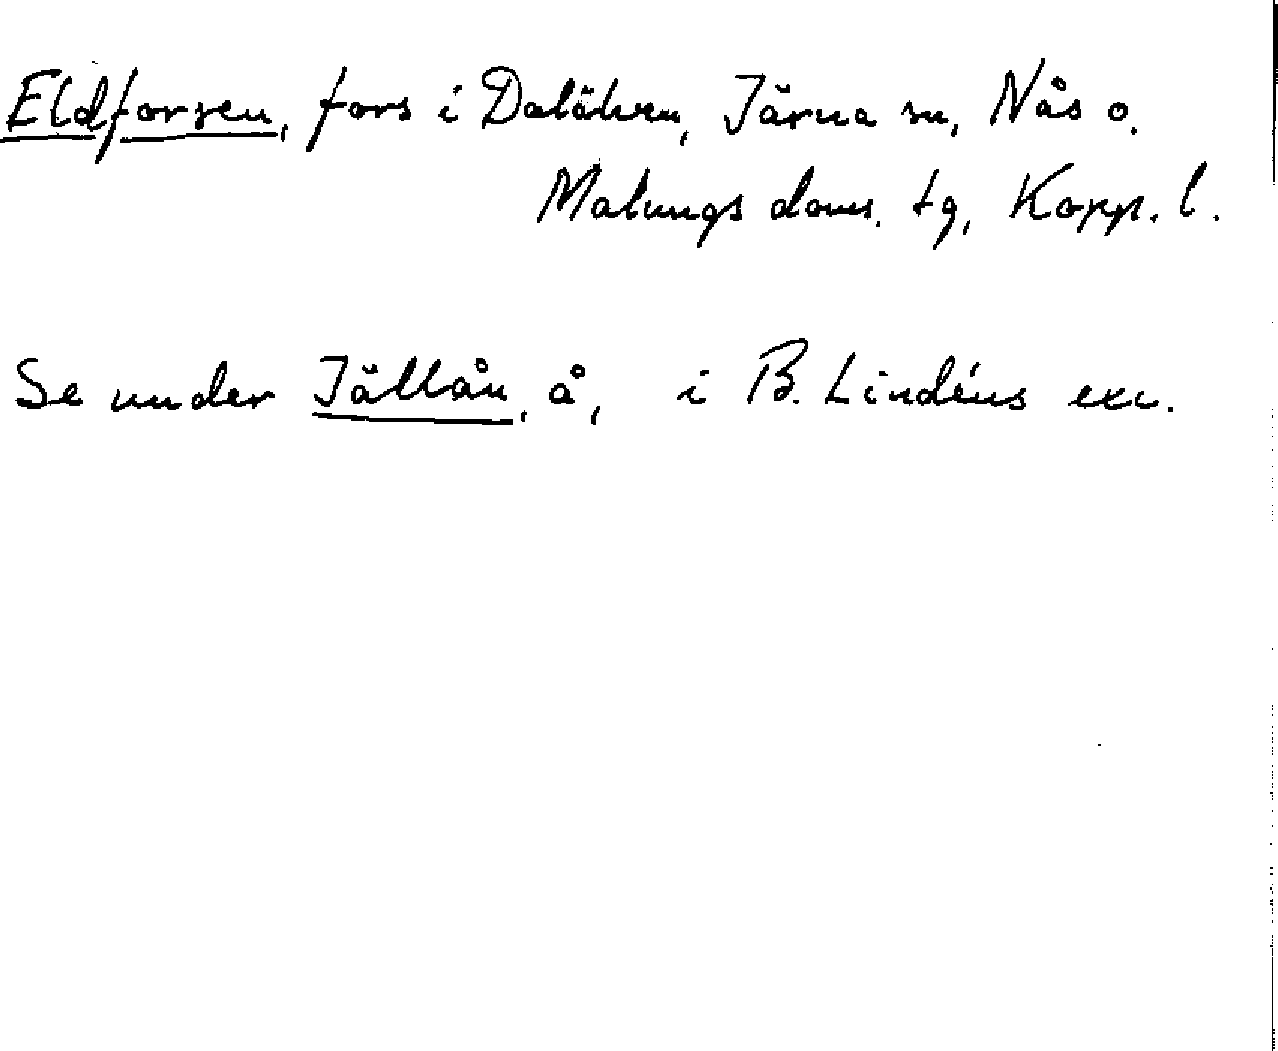 Eldforsen, fors i Dalälven, Järna sn, Nås o.
Malungs doms. tg, Kopp. l.
Se under Jällån, å, i B. Lindéns exc.